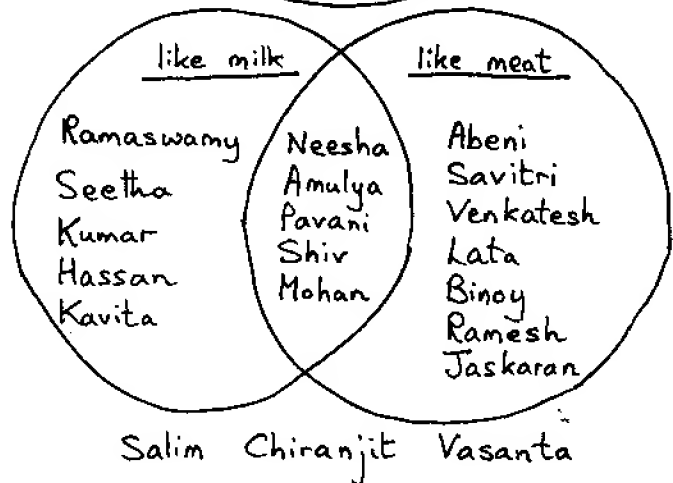 like milk
like meat
Ramaswamy
Seetha
Kumar
Hassan
Kavita
Neesha
Amulya
Pavani
Shiv
Mohan
Abeni
Savitri
Venkatesh
Lata
Binoy
Ramesh
Jaskaran
Salim Chiranjit Vasanta